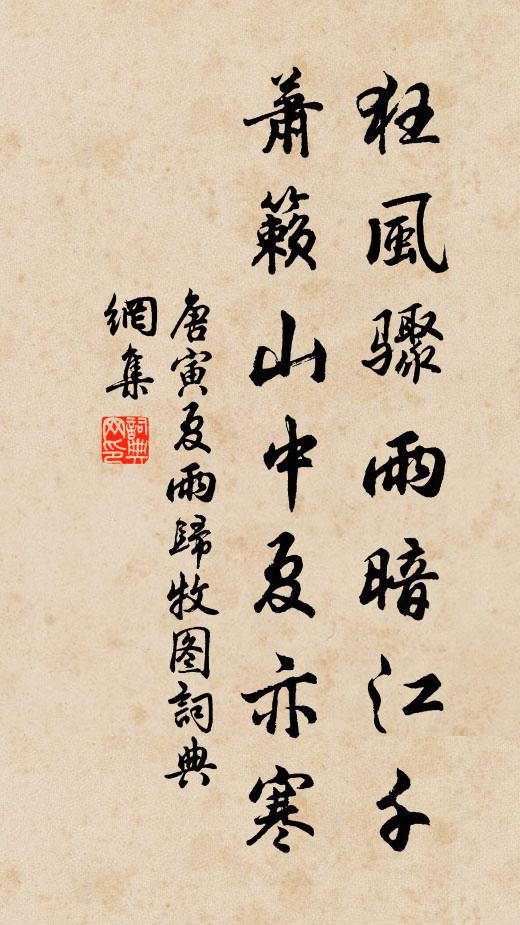 狂風驟雨暗江千
蕭籟山中夏亦寒
唐寅夏雨歸牧图詞典
網集
詞典
网印